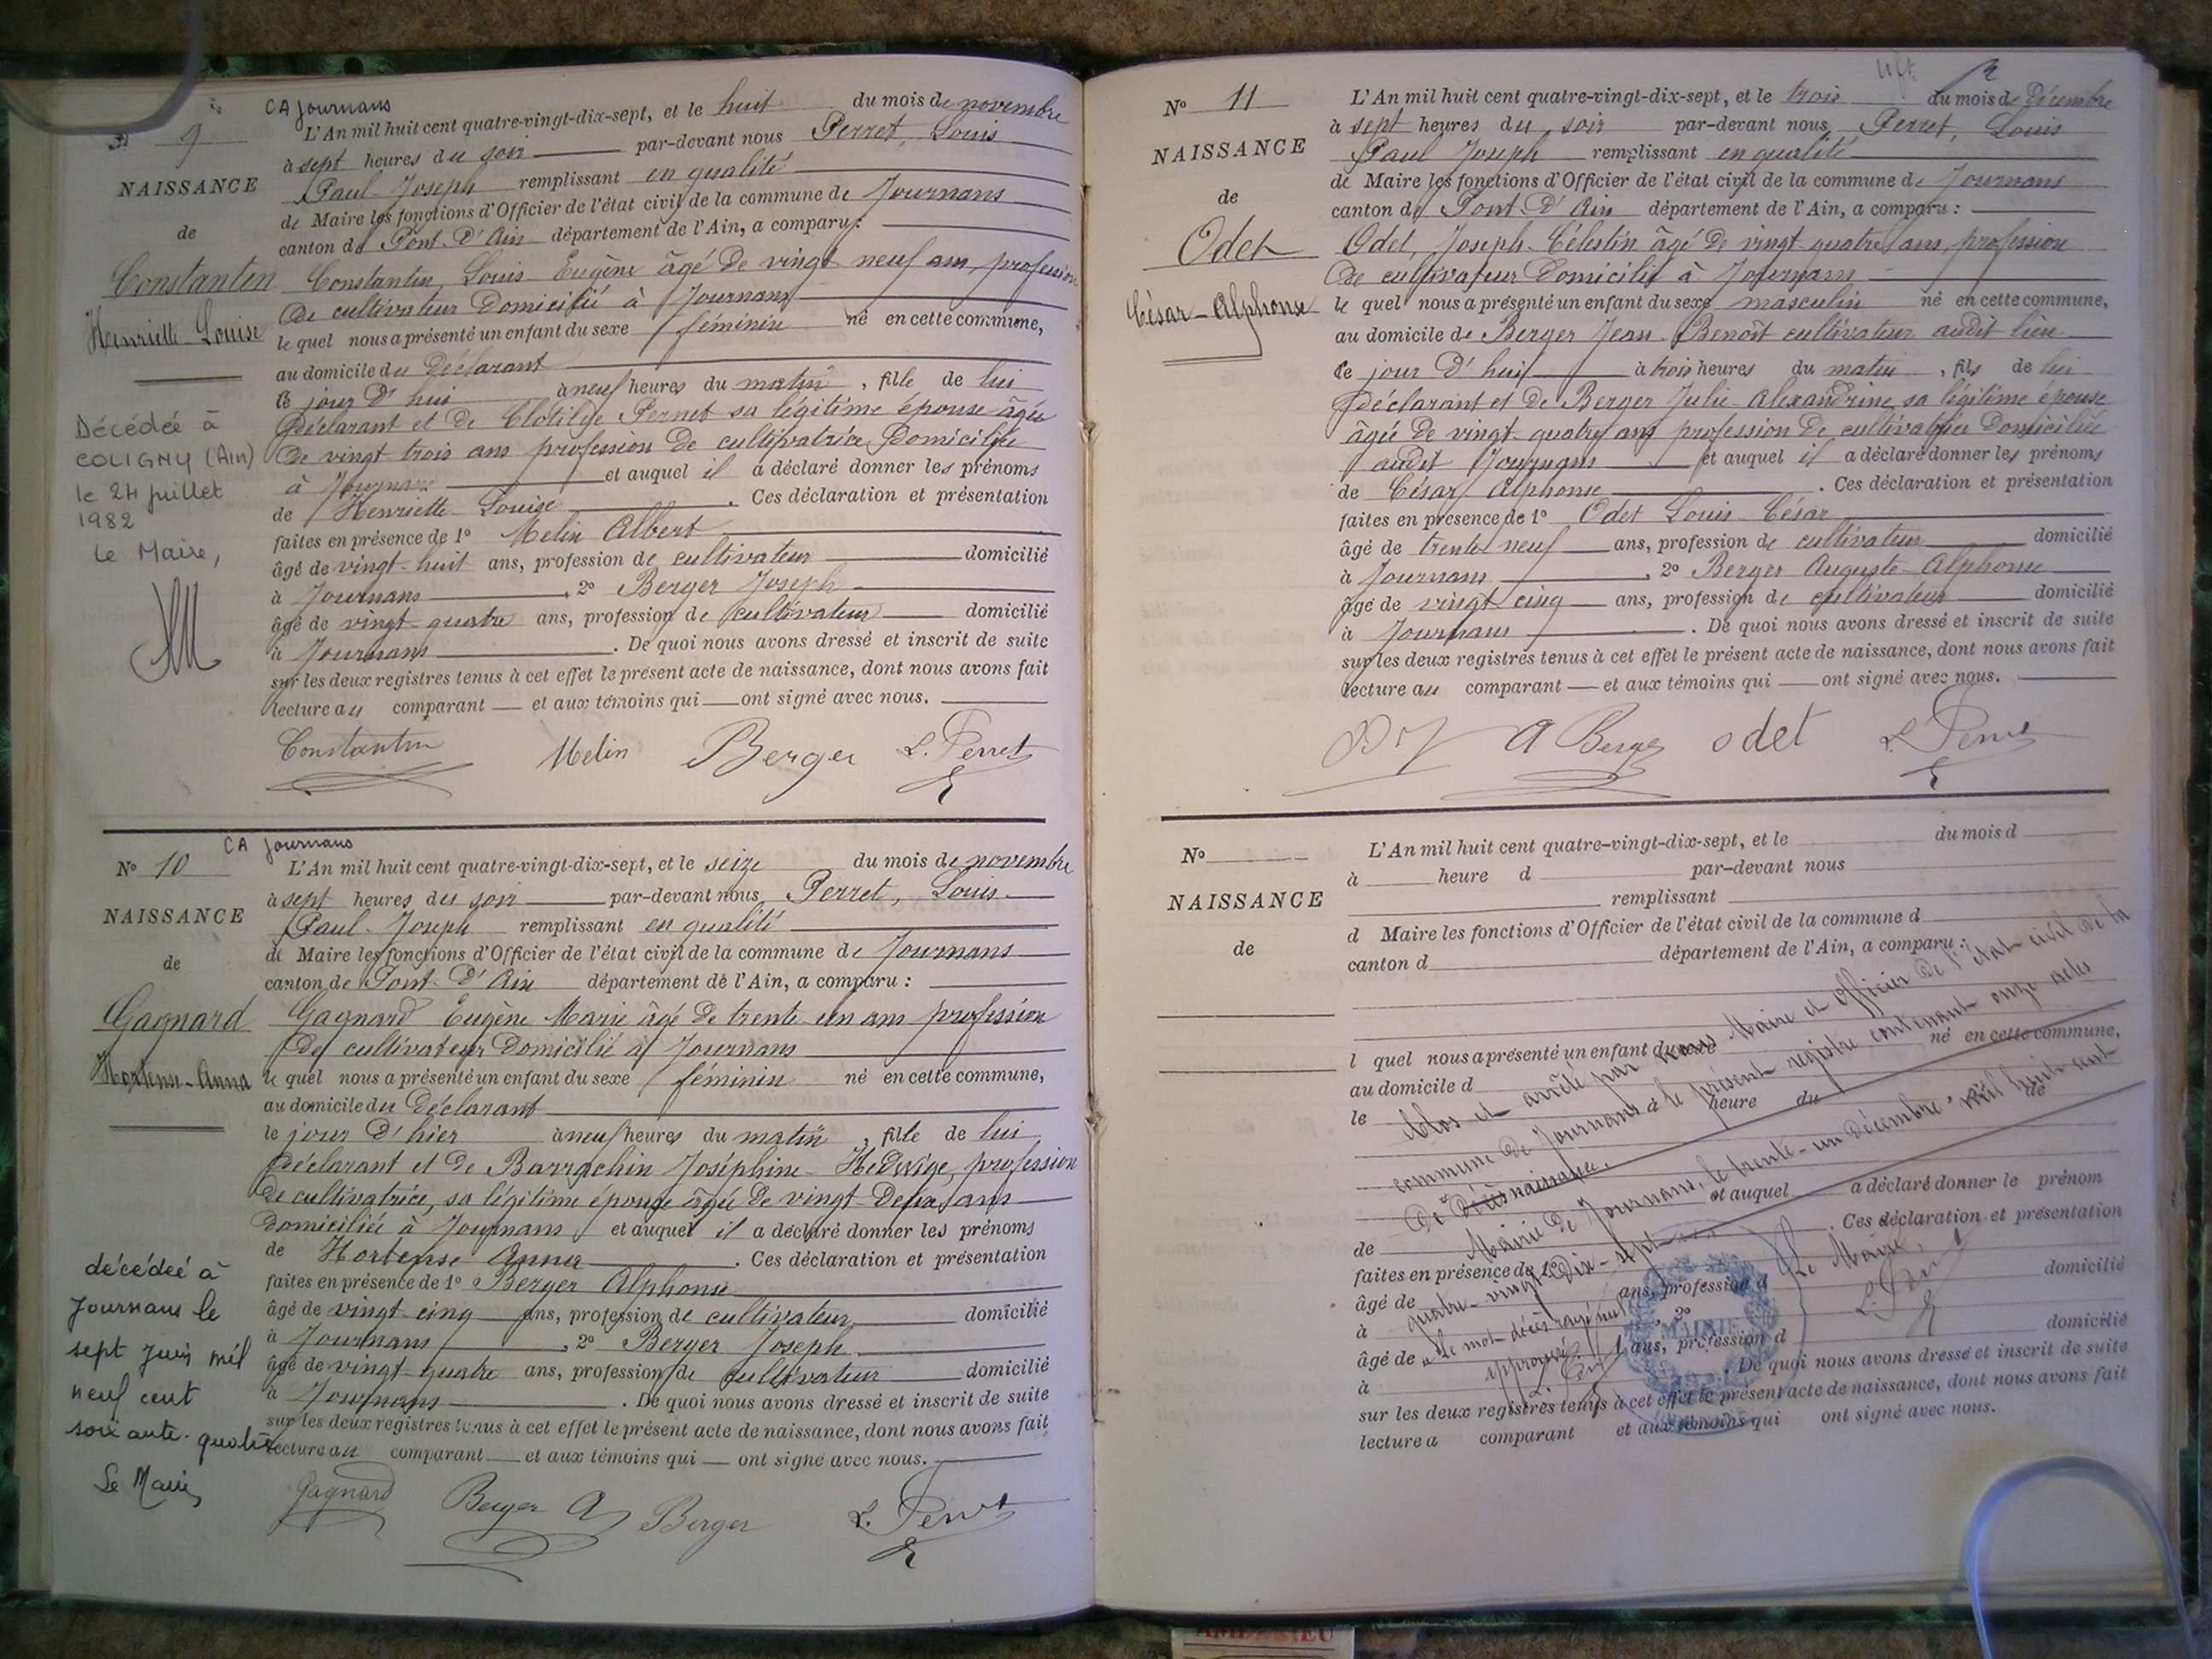 CA Journans
N° 9
L'An mil huit cent quatre-vingt-dix-sept, et le huit du mois de novembre
à sept heures du soir par-devant nous Perret, Louis
NAISSANCE
Paul Joseph remplissant en qualité
de Maire les fonctions d'Officier de l'état civil de la commune de Journans
de
canton de Pont-d'Ain département de l'Ain, a comparu :
Constantin
Constantin Louis Eugène âgé de vingt neuf ans, profession
de cultivateur domicilié à Journans
Henriette-Louise
le quel nous a présenté un enfant du sexe féminin né en cette commune,
au domicile du déclarant
ce jour d'hui à neuf heures du matin, fille de lui
déclarant et de Clotilde Pernet sa légitime épouse âgée
de vingt trois ans profession de cultivatrice domiciliée
à Journans et auquel il a déclaré donner les prénoms
de Henriette-Louise. Ces déclaration et présentation
faites en présence de 1° Melin Albert
âgé de vingt-huit ans, profession de cultivateur domicilié
à Journans, 2° Berger Joseph
âgé de vingt-quatre ans, profession de cultivateur domicilié
à Journans. De quoi nous avons dressé et inscrit de suite
sur les deux registres tenus à cet effet le présent acte de naissance, dont nous avons fait
lecture au comparant et aux témoins qui ont signé avec nous.
Décédée à
COLIGNY (Ain)
le 24 juillet
1982
Le Maire,
Constantin Melin Berger L. Perret
CA Journans
N° 10
L'An mil huit cent quatre-vingt-dix-sept, et le seize du mois de novembre
à sept heures du soir par-devant nous Perret, Louis
NAISSANCE
Paul-Joseph remplissant en qualité
de Maire les fonctions d'Officier de l'état civil de la commune de Journans
de
canton de Pont-d'Ain département de l'Ain, a comparu :
Gagnard
Gagnard Eugène Marie âgé de trente un ans profession
de cultivateur domicilié à Journans
Hortense-Anna
le quel nous a présenté un enfant du sexe féminin né en cette commune,
au domicile du déclarant
le jour d'hier à neuf heures du matin, fille de lui
déclarant et de Barrachin Joséphine-Hedwige, profession
de cultivatrice, sa légitime épouse âgée de vingt-deux ans
domiciliée à Journans et auquel il a déclaré donner les prénoms
de Hortense Anna. Ces déclaration et présentation
faites en présence de 1° Berger Alphonse
âgé de vingt-cinq ans, profession de cultivateur domicilié
à Journans, 2° Berger Joseph
âgé de vingt-quatre ans, profession de cultivateur domicilié
à Journans. De quoi nous avons dressé et inscrit de suite
sur les deux registres tenus à cet effet le présent acte de naissance, dont nous avons fait
lecture au comparant et aux témoins qui ont signé avec nous.
décédée à
Journans le
sept Juin mil
neuf cent
soixante-quatre
Le Maire
Gagnard Berger A Berger L. Perret
N° 11
L'An mil huit cent quatre-vingt-dix-sept, et le trois du mois de Décembre
à sept heures du soir par-devant nous Perret, Louis
NAISSANCE
Paul Joseph remplissant en qualité
de Maire les fonctions d'Officier de l'état civil de la commune de Journans
de
canton de Pont-d'Ain département de l'Ain, a comparu :
Odet
Odet, Joseph-Célestin âgé de vingt-quatre ans, profession
de cultivateur domicilié à Journans
César-Alphonse
le quel nous a présenté un enfant du sexe masculin né en cette commune,
au domicile de Berger Jean-Benoît cultivateur audit lieu
ce jour d'hui à trois heures du matin, fils de lui
déclarant et de Berger Julie-Alexandrine sa légitime épouse
âgée de vingt-quatre ans profession de cultivatrice domiciliée
audit Journans et auquel il a déclaré donner les prénoms
de César Alphonse. Ces déclaration et présentation
faites en présence de 1° Odet Louis-César
âgé de trente neuf ans, profession de cultivateur domicilié
à Journans, 2° Berger Auguste-Alphonse
âgé de vingt cinq ans, profession de cultivateur domicilié
à Journans. De quoi nous avons dressé et inscrit de suite
sur les deux registres tenus à cet effet le présent acte de naissance, dont nous avons fait
lecture au comparant et aux témoins qui ont signé avec nous.
A Berger odet L. Perret
N°
L'An mil huit cent quatre-vingt-dix-sept, et le du mois d
à heure d par-devant nous
NAISSANCE
remplissant
d Maire les fonctions d'Officier de l'état civil de la commune d
de
canton d département de l'Ain, a comparu :
l quel nous a présenté un enfant du sexe né en cette commune,
au domicile d
le heure du de
et auquel a déclaré donner le prénom
de . Ces déclaration et présentation
faites en présence de 1°
âgé de ans, profession d domicilié
à , 2°
âgé de ans, profession d domicilié
à . De quoi nous avons dressé et inscrit de suite
sur les deux registres tenus à cet effet le présent acte de naissance, dont nous avons fait
lecture a comparant et aux témoins qui ont signé avec nous.
Clos et arrêté par nous Maire et Officier de l'état civil de la
commune de Journans le présent registre contenant onze actes
de décès naissance.
Mairie de Journans, le trente-un décembre mil huit cent
quatre-vingt-dix-sept
Le Maire,
L. Perret
Le mot décès rayé nul
approuvé
MAIRIE